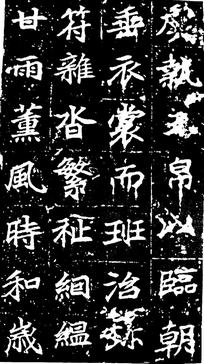 執玉帛以臨朝
垂衣裳而班治珎
符雜沓繁祉絪縕
甘雨薰風時和歲